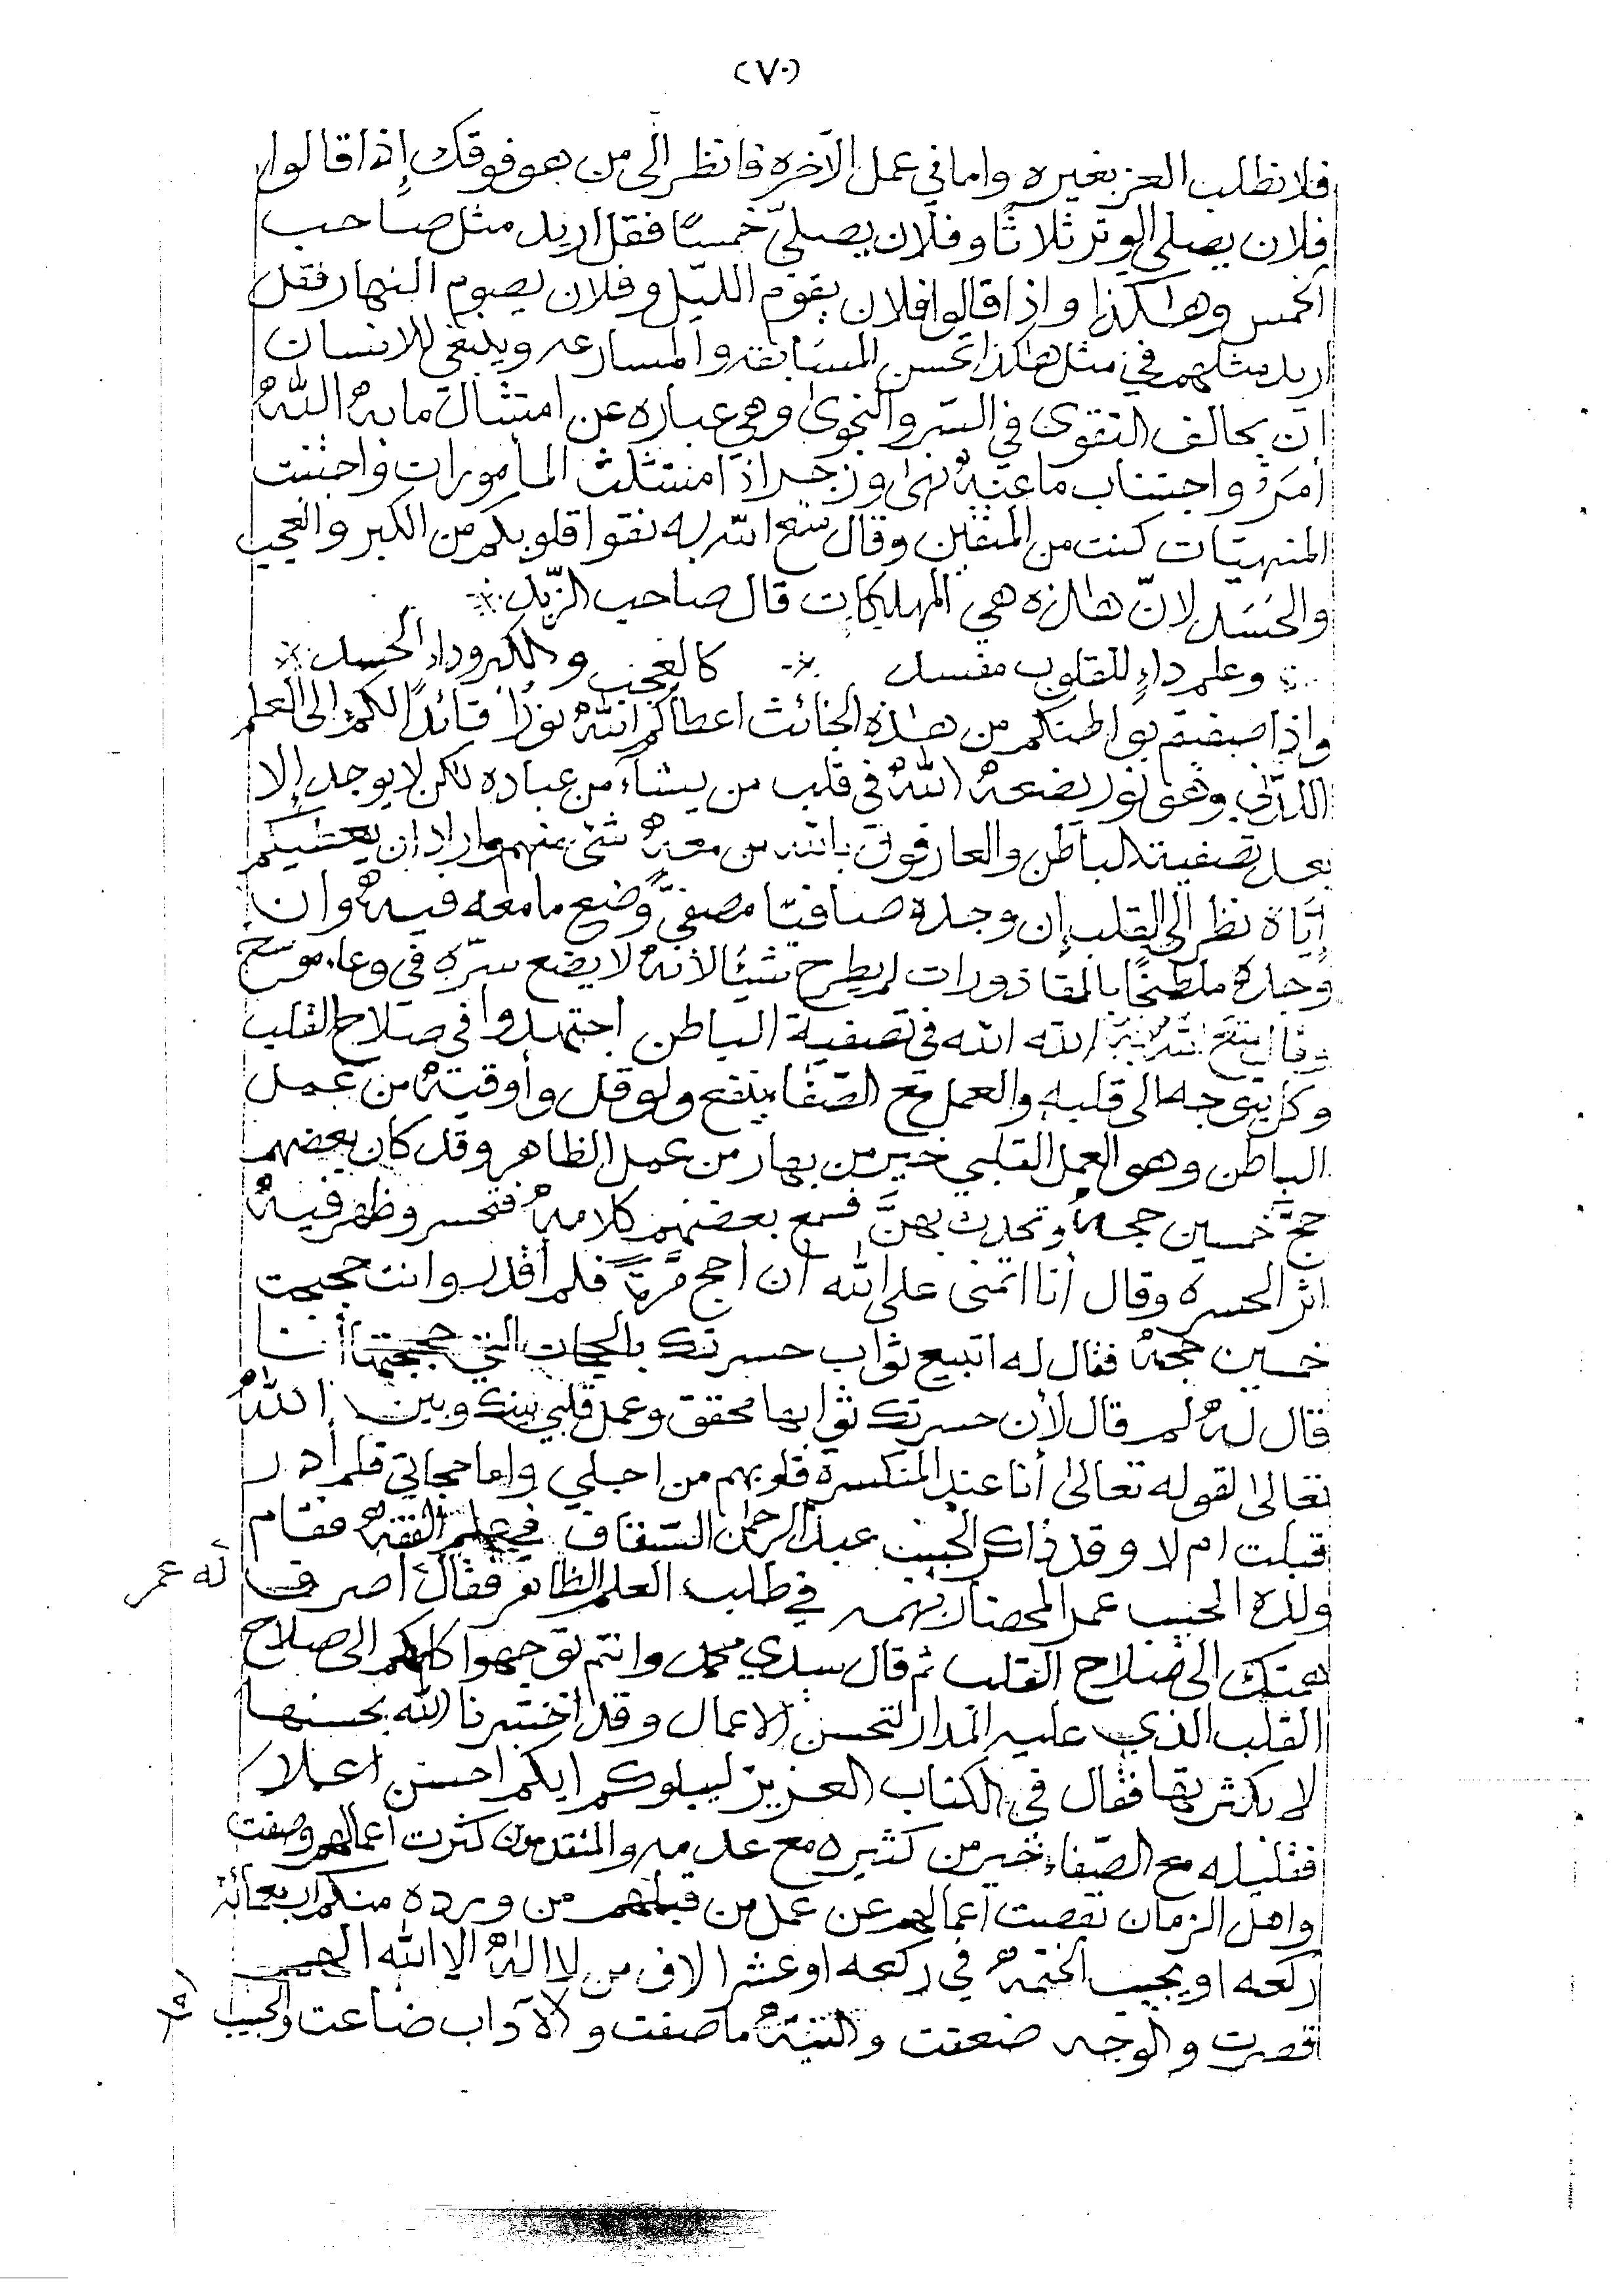 (٧٠)
فلا نطلب العز بغيره واما في عمل الآخره فانظر الى من هو فوقك إذا قالوا
فلان يصلي الوتر ثلاثًا وفلان يصلي خمسًا فقل اريد مثل صاحب
الخمس وهاكذا واذا قالوا فلان يقوم الليل وفلان يصوم النهار فقل
اريد مثلهم ففي مثل هاكذا تحسن المسابقه والمسارعه وينبغي للانسان
ان يحالف التقوى في السر والنجوى وهي عباره عن امتثال ما به اللهُ
أمَرَ واجتناب ما عنهُ نهى وزجر اذا امتثلت المأمورات واجتنبت
المنهيّات كنت من المتقين وقال متع الله به نقوا قلوبكم من الكبر والعجب
والحَسَد لانّ هاذه هي المهلكات قال صاحب الزّبَد
وعلم داءٍ للقلوب مفسد ※ كالعجب والكبر وداء الحسد ※
واذا صفيتم بواطنكم من هاذه الخبائث اعطاكم اللهُ نورًا قائدًا لكم إلى العلم
اللدّني وهو نور يضعهُ اللهُ في قلب من يشاء من عباده لكن لا يوجد إلا
بعد تصفية الباطن والعارفون بالله من معهُ شئ منهم واراد ان يعطيكم
إيّاهُ نظر الى القلب إن وجده صافيًا مصفىًّ وضع ما معه فيهُ وان
وجدهُ ملطخًا بالقاذورات لم يطرح شيئًا لانهُ لا يضع سرّه في وعاء موسخ
وقال متع الله به الله الله في تصفية الباطن اجتهدوا في صلاح القلب
وكلٌ يتوجه الى قلبه والعمل مع الصّفاء ينفع ولو قل وأوقيّهُ من عمل
الباطن وهو العمل القلبي خير من بهار من عمل الظاهر وقد كان بعضهم
حجَّ خمسين حجهُ وتحدث بهنَّ فسمع بعضهم كلامهُ فتحسر وظهر فيهُ
اثر الحسره وقال أنا اتمنى على الله ان احج مرّةً فلم أقدر وانت حججت
خمسين حجهُ فقال له اتبيع ثواب حسرتك بالحجات التي حججتها أنا
قال لهُ لم قال لأن حسرتك ثوابها محقق وعمل قلبي بينك وبين اللهُ
تعالى لقوله تعالى أنا عند المنكسرة قلوبهم من اجلي واما حجاتي فلم أدر
قبلت ام لا وقد ذاكر الحبيب عبدالرحمن السقاف في علم الفقه فقام
ولده الحبيب عمر المحضار بنهمه في طلب العلم الظاهر فقال أصرف له عمر
همتك الى صلاح القلب ثم قال سيدي محمد وانتم توجهوا كلكم الى صلاح
القلب الذي عليه المدار لتحسن الاعمال وقد اختبرنا الله بحسنها
لا بكثرتها فقال في الكتاب العزيز ليبلوكم ايكم احسن اعملا
فقليله مع الصّفاء خير من كثيره مع عدمه والمتقدمون كثرت اعمالهم وصفت
واهل الزمان نقصت اعمالهم عن عمل من قبلهم من ورده منكم اربعمائة
ركعه او يجيب الختمهُ في ركعه او عشر الاف من لا الهُ الا الله
قصرت والوجه ضعفت والنيّهُ ما صفت والآداب ضاعت والحبيب